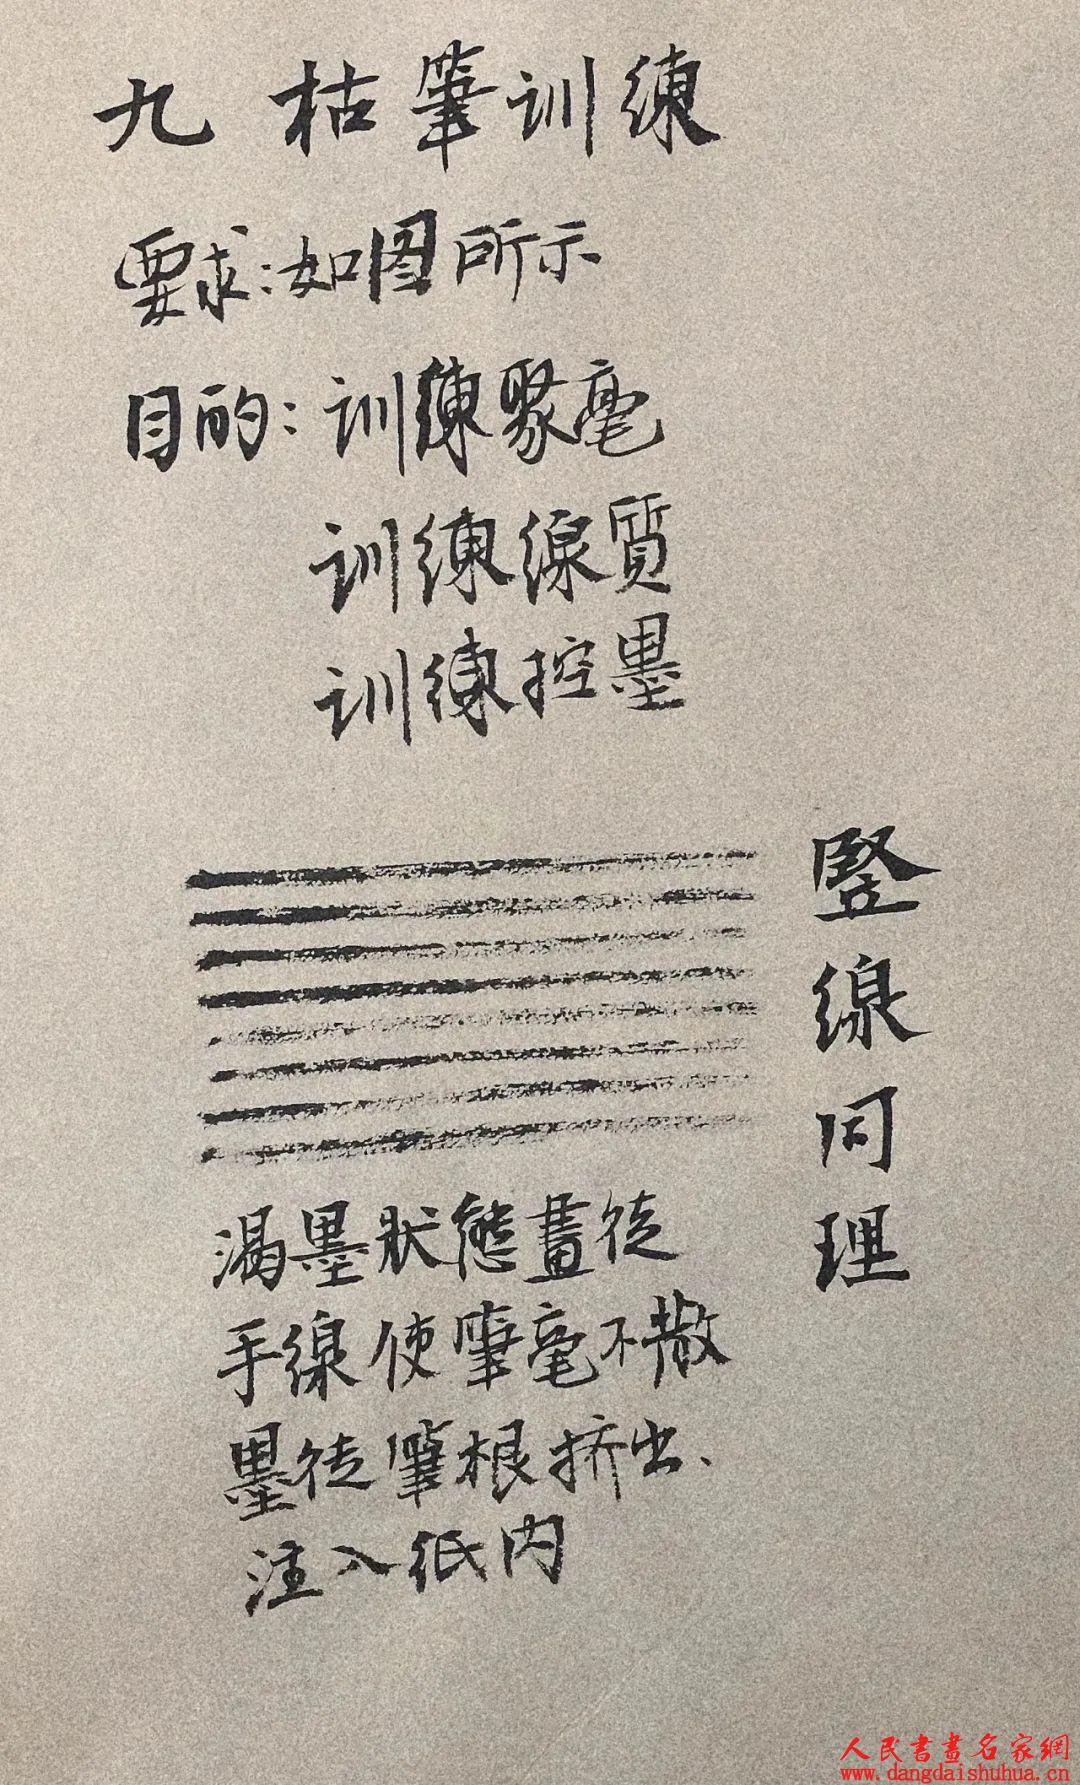 九 枯筆训練
要求:如图所示
目的:训練聚毫
训練線質
训練控墨
竖線同理
渴墨狀態畫徒
手線使筆毫不散
墨從筆根挤出、
注入纸内
人民書畫名家網
www.dangdaishuhua.cn